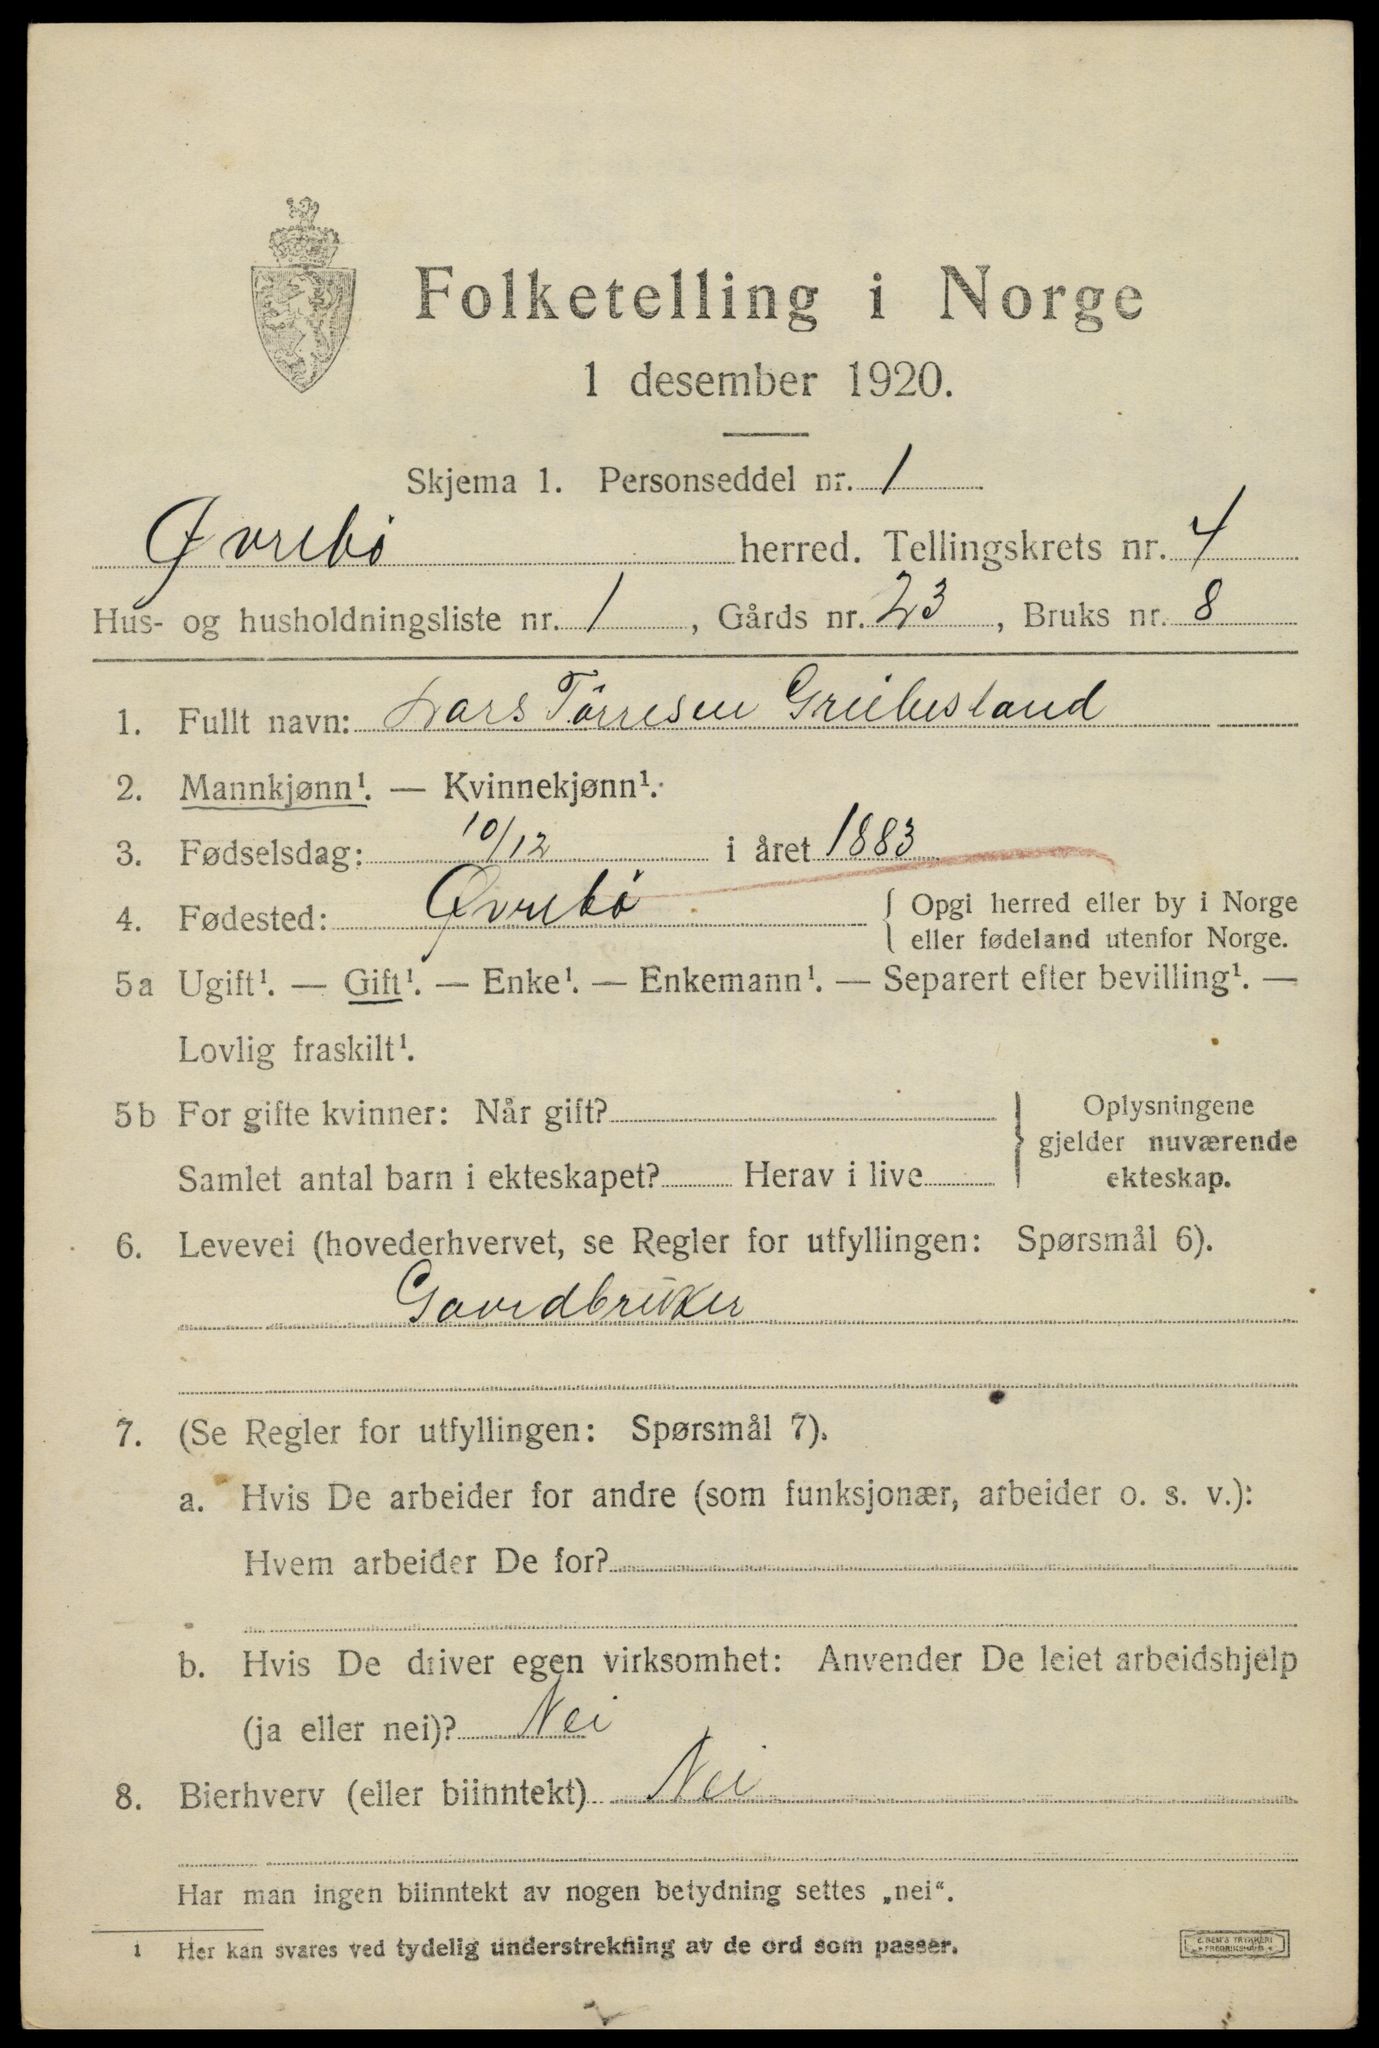 Folketelling i Norge
1 desember 1920.
Skjema 1. Personseddel nr. 1
Øvrebö herred. Tellingskrets nr. 4
Hus- og husholdningsliste nr. 1, Gårds nr. 23, Bruks nr. 8
1. Fullt navn: Lars Törresen Greibesland
2. Mannkjønn¹. — Kvinnekjønn¹.
3. Fødselsdag: 10/12 i året 1883
4. Fødested: Øvrebö { Opgi herred eller by i Norge
eller fødeland utenfor Norge.
5a Ugift¹. — Gift¹. — Enke¹. — Enkemann¹. — Separert efter bevilling¹. —
Lovlig fraskilt¹.
5b For gifte kvinner: Når gift? } Oplysningene
gjelder nuværende
Samlet antal barn i ekteskapet? Herav i live ekteskap.
6. Levevei (hovederhvervet, se Regler for utfyllingen: Spørsmål 6).
Gaardbrüker
7. (Se Regler for utfyllingen: Spørsmål 7).
a. Hvis De arbeider for andre (som funksjonær, arbeider o. s. v.):
Hvem arbeider De for?
b. Hvis De driver egen virksomhet: Anvender De leiet arbeidshjelp
(ja eller nei)? Nei
8. Bierhverv (eller biinntekt) Nei
Har man ingen biinntekt av nogen betydning settes „nei“.
1 Her kan svares ved tydelig understrekning av de ord som passer.